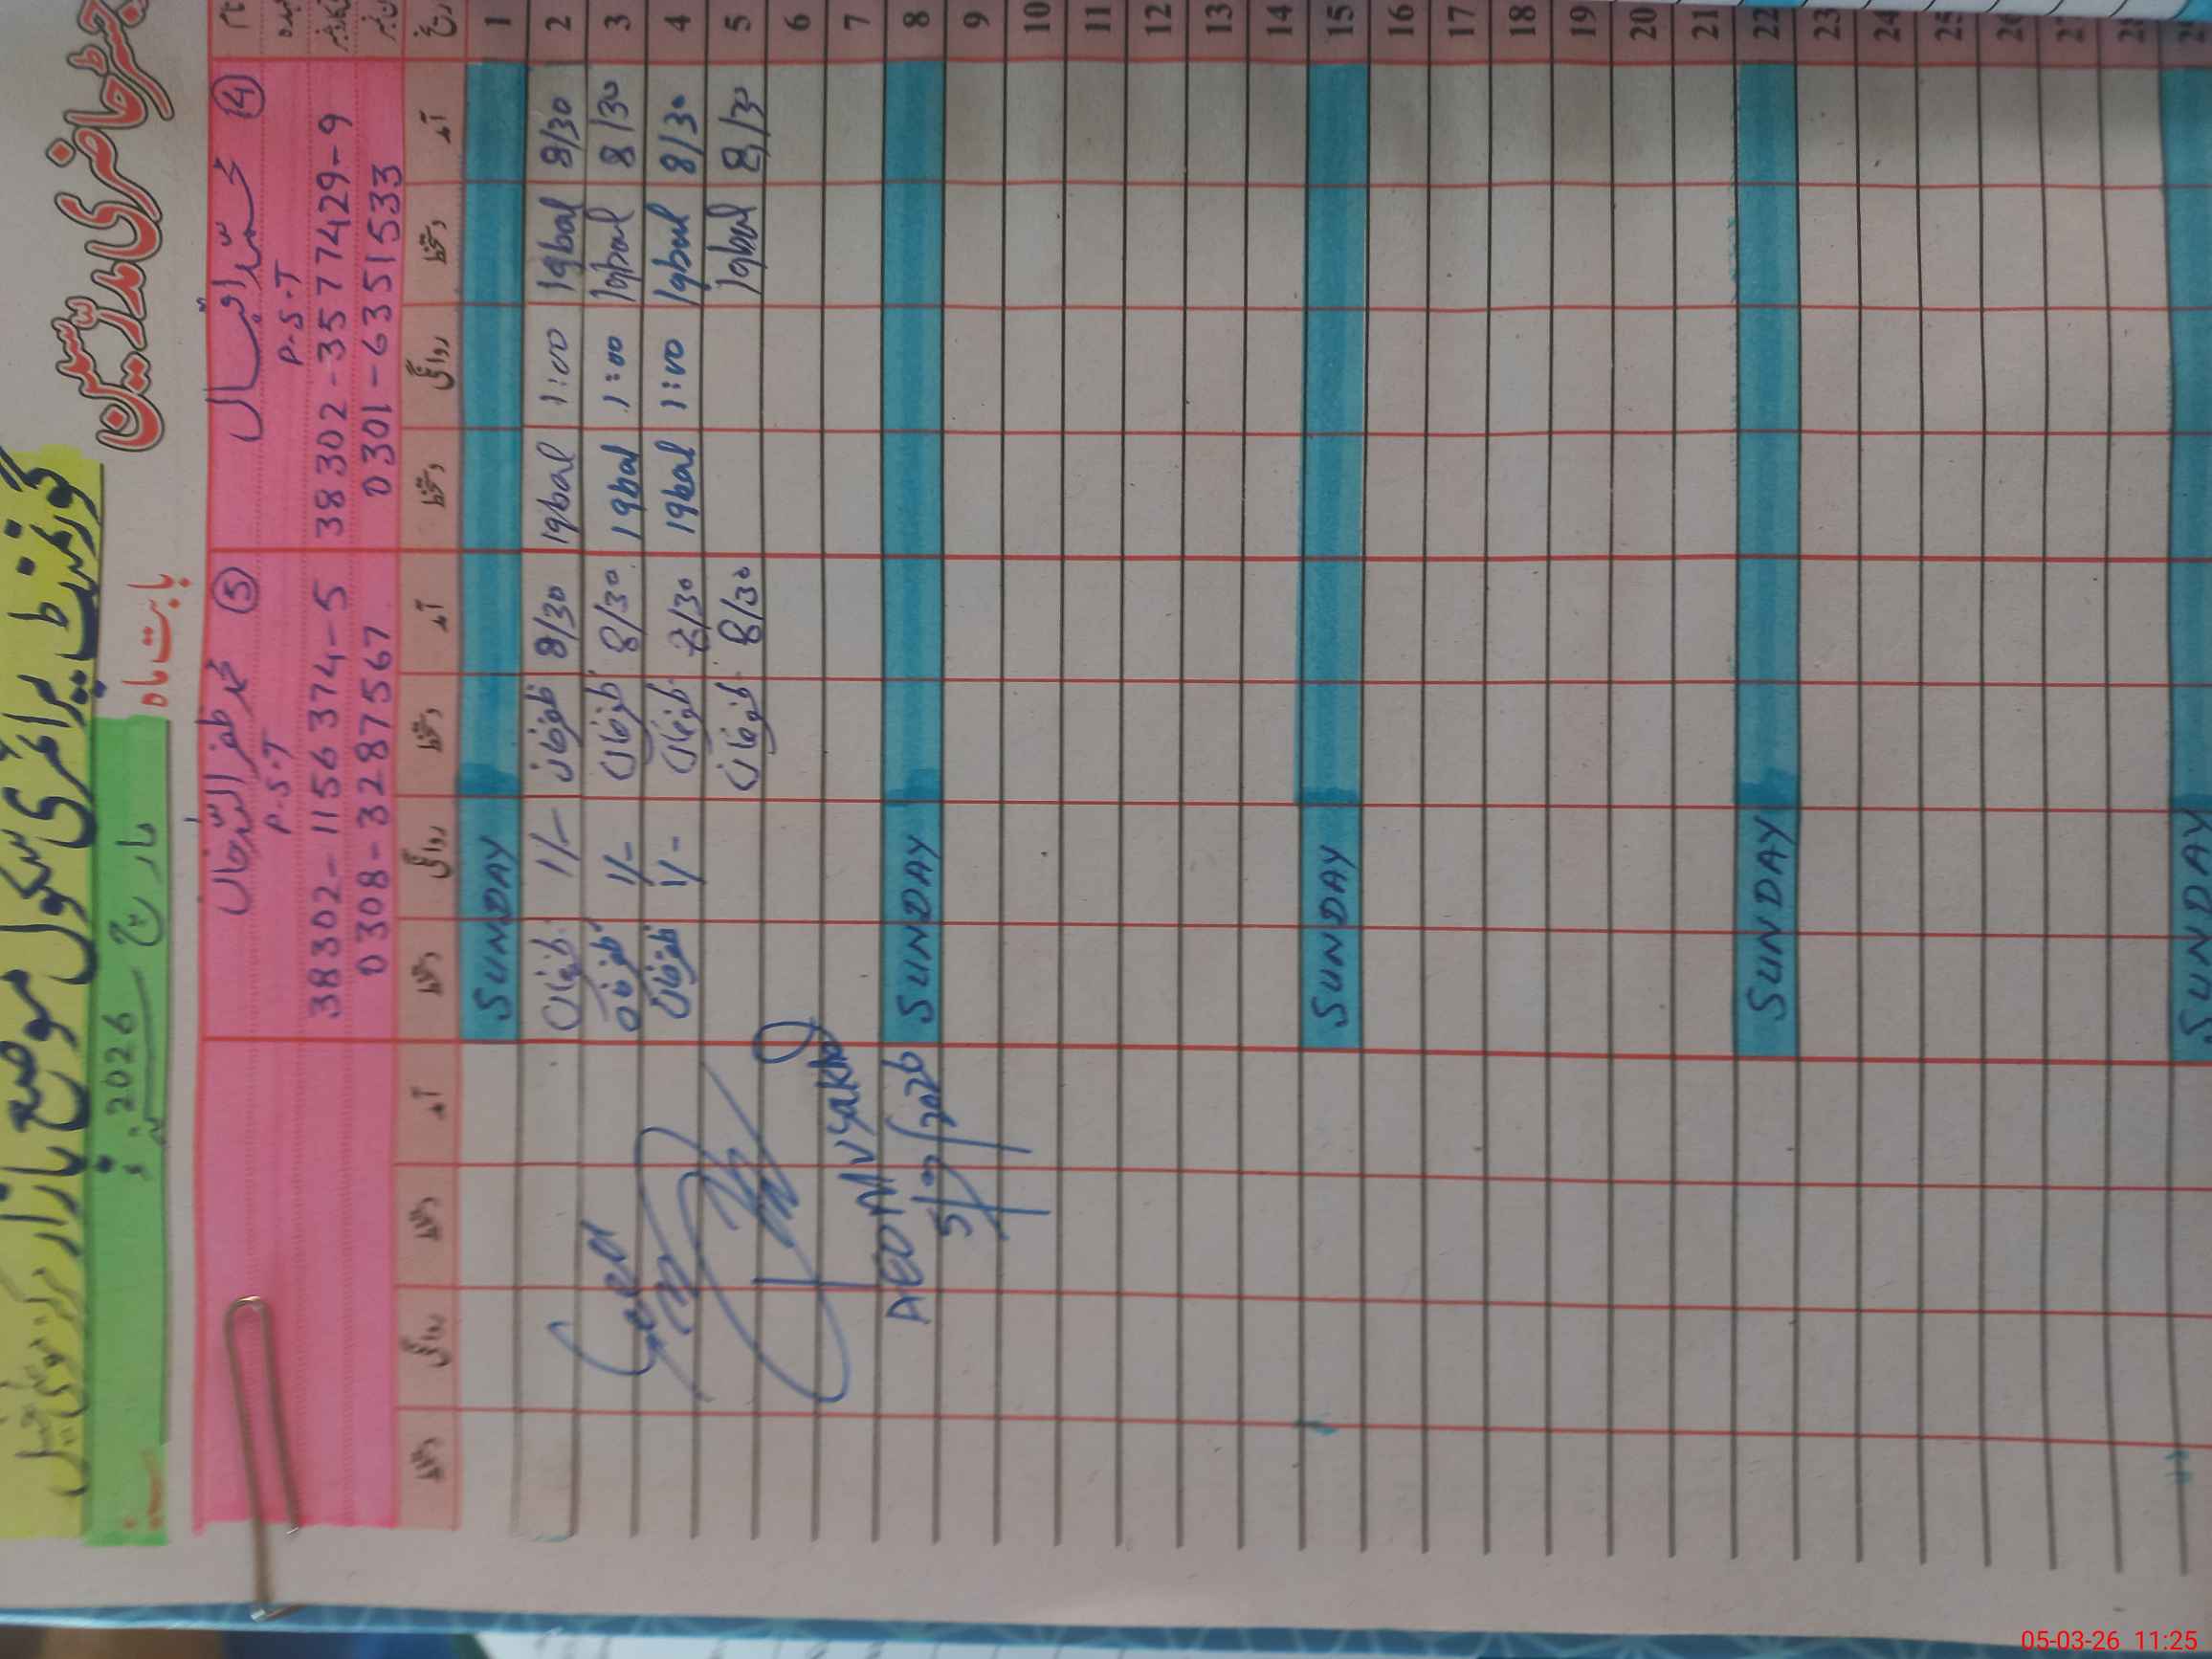 گورنمنٹ پرائمری سکول موضع بازار
رجسٹر حاضری مدرّسین
بابت ماہ مارچ 2026ء
نام محمد اقبال ④ محمد ظفر اللہ خان ⑤
عہدہ P.S.T P.S.T
38302-3577429-9 38302-1156374-5
0301-6351533 0308-3287567
تاریخ آمد دستخط روانگی دستخط آمد دستخط روانگی دستخط آمد دستخط روانگی دستخط
1 SUNDAY
2 8/30 Iqbal 1:00 Iqbal 8/30 ظفر خان 1/-  ظفر خان
3 8/30 Iqbal 1:00 Iqbal 8/30 ظفر خان 1/- ظفر خان
4 8/30 Iqbal 1:00 Iqbal 8/30 ظفر خان 1/- ظفر خان
5 8/30 Iqbal 8/30 ظفر خان
6
7
8 SUNDAY
Seen
AEO
5/3/2026
9
10
11
12
13
14
15 SUNDAY
16
17
18
19
20
21
22 SUNDAY
23
24
25
26
27
28
29 SUNDAY
05-03-26 11:25